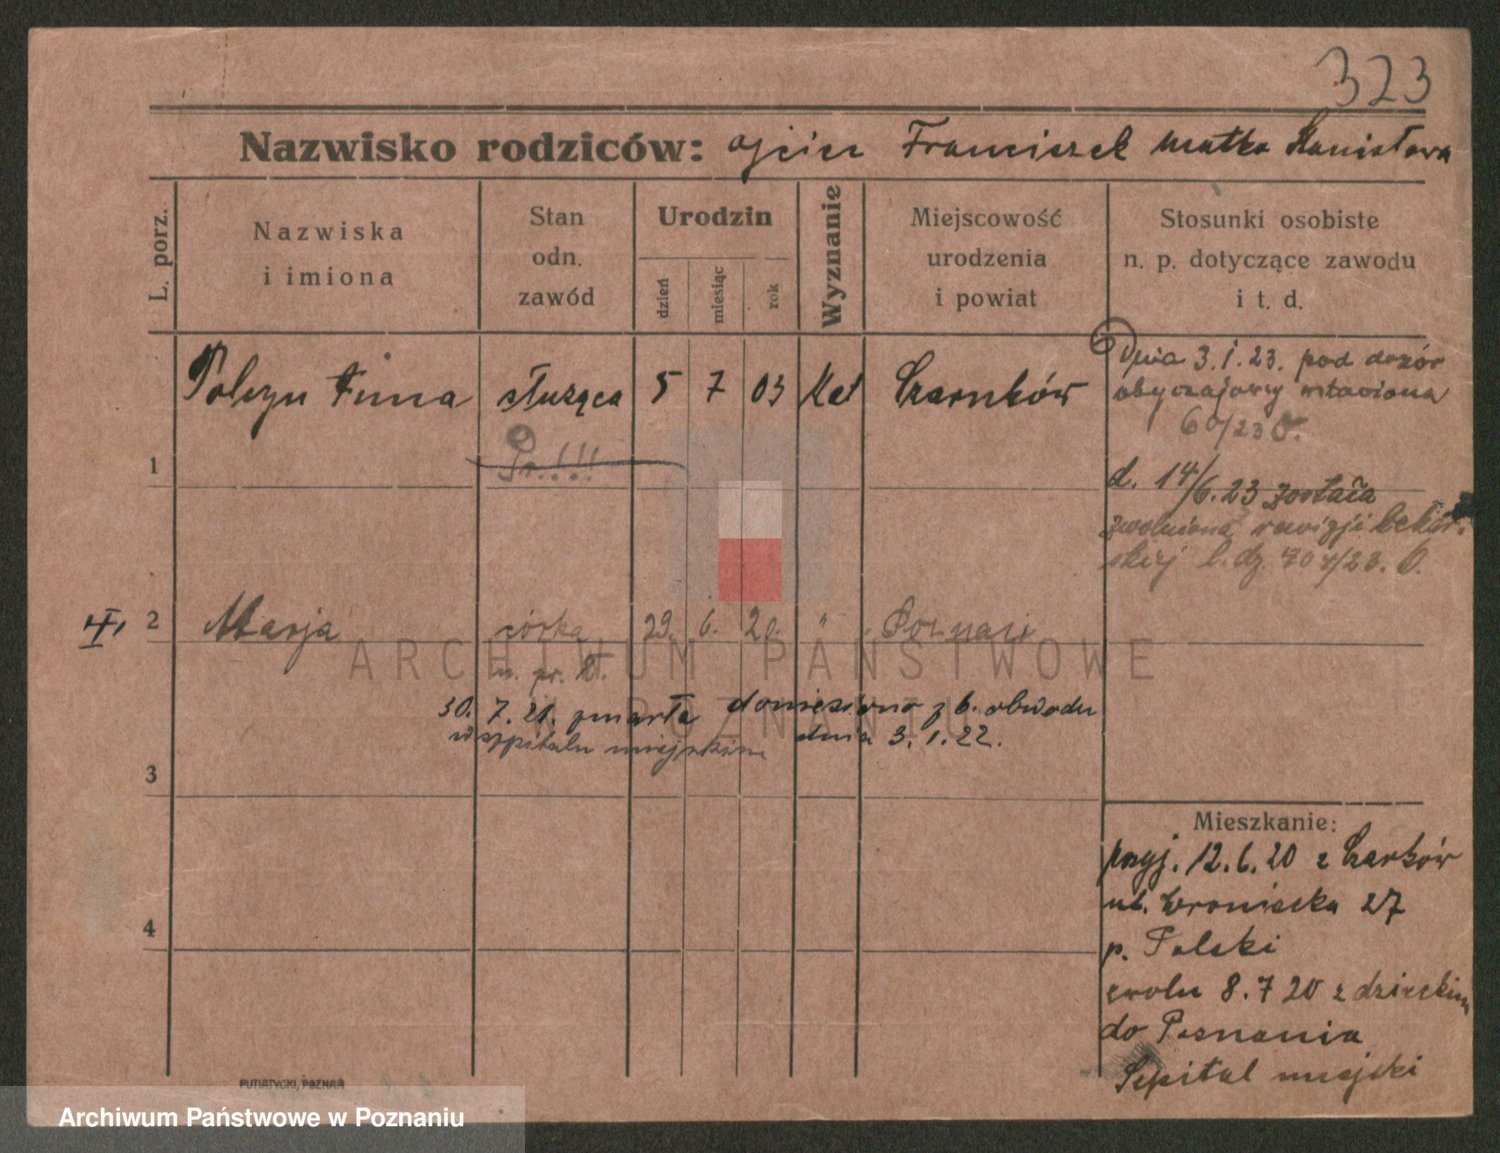 323
Nazwisko rodziców: ojciec Franciszek matka Stanisława
L. porz.
Nazwiska
i imiona
Stan
odn.
zawód
Urodzin
dzień
miesiąc
rok
Wyznanie
Miejscowość
urodzenia
i powiat
Stosunki osobiste
n. p. dotyczące zawodu
i t. d.
1
Polczyn Anna
służąca
5
7
03
Kat
Czarnków
Pr.!!!
Dnia 3.1.23. pod dozór
obyczajowy wstawiona
60/23
d. 14/6.23 została
zwolniona rewizji lekar-
skiej l. dz. 704/23.
2
Marja
córka
29.
6.
20.
"
Poznań
30. 7. 21. zmarła doniesiono z 6. obwodu
w szpitalu miejskim dnia 3.1.22.
3
4
Mieszkanie:
przyj. 12.6.20 z Czarków
ul. Wroniecka 27
p. Polski
8.7 20 z dzieckiem
do Poznania
Szpital miejski
PUTIATYCKI, POZNAŃ
ARCHIWUM PAŃSTWOWE
W POZNANIU
Archiwum Państwowe w Poznaniu